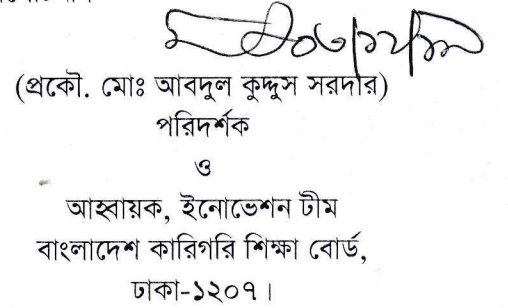 (প্রকৌ. মোঃ আবদুল কুদ্দুস সরদার)
পরিদর্শক
ও
আহবায়ক, ইনোভেশন টীম
বাংলাদেশ কারিগরি শিক্ষা বোর্ড,
ঢাকা-১২০৭।